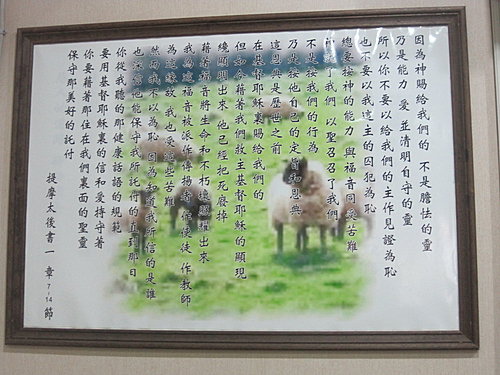 因為神賜給我們的 不是膽怯的靈
乃是能力 愛 並清明自守的靈
所以你不要以給我們的主作見證為恥
也不要以我這主的囚犯為恥
總要按神的能力 與福音同受苦難
了我們 以聖召召了我們
不是按我們的行為
乃是按他自己的定旨和恩典
這恩典是歷世之前
在基督耶穌裏賜給我們的
但如今藉著我們救主基督耶穌的顯現
纔顯明出來 他已經把死廢掉
藉著福音將生命和不朽壞照耀出來
我為這福音被派作傳揚者 作使徒 作教師
為這緣故 我也受這些苦難
然而我不以為恥 因為知道我所信的是誰
也深信他能保守我所託付的 直到那日
你從我聽的那健康話語的規範
要用基督耶穌裏的信和愛持守著
你要藉著那住在我們裏面的聖靈
保守那美好的託付
提摩太後書 一章 7~14節